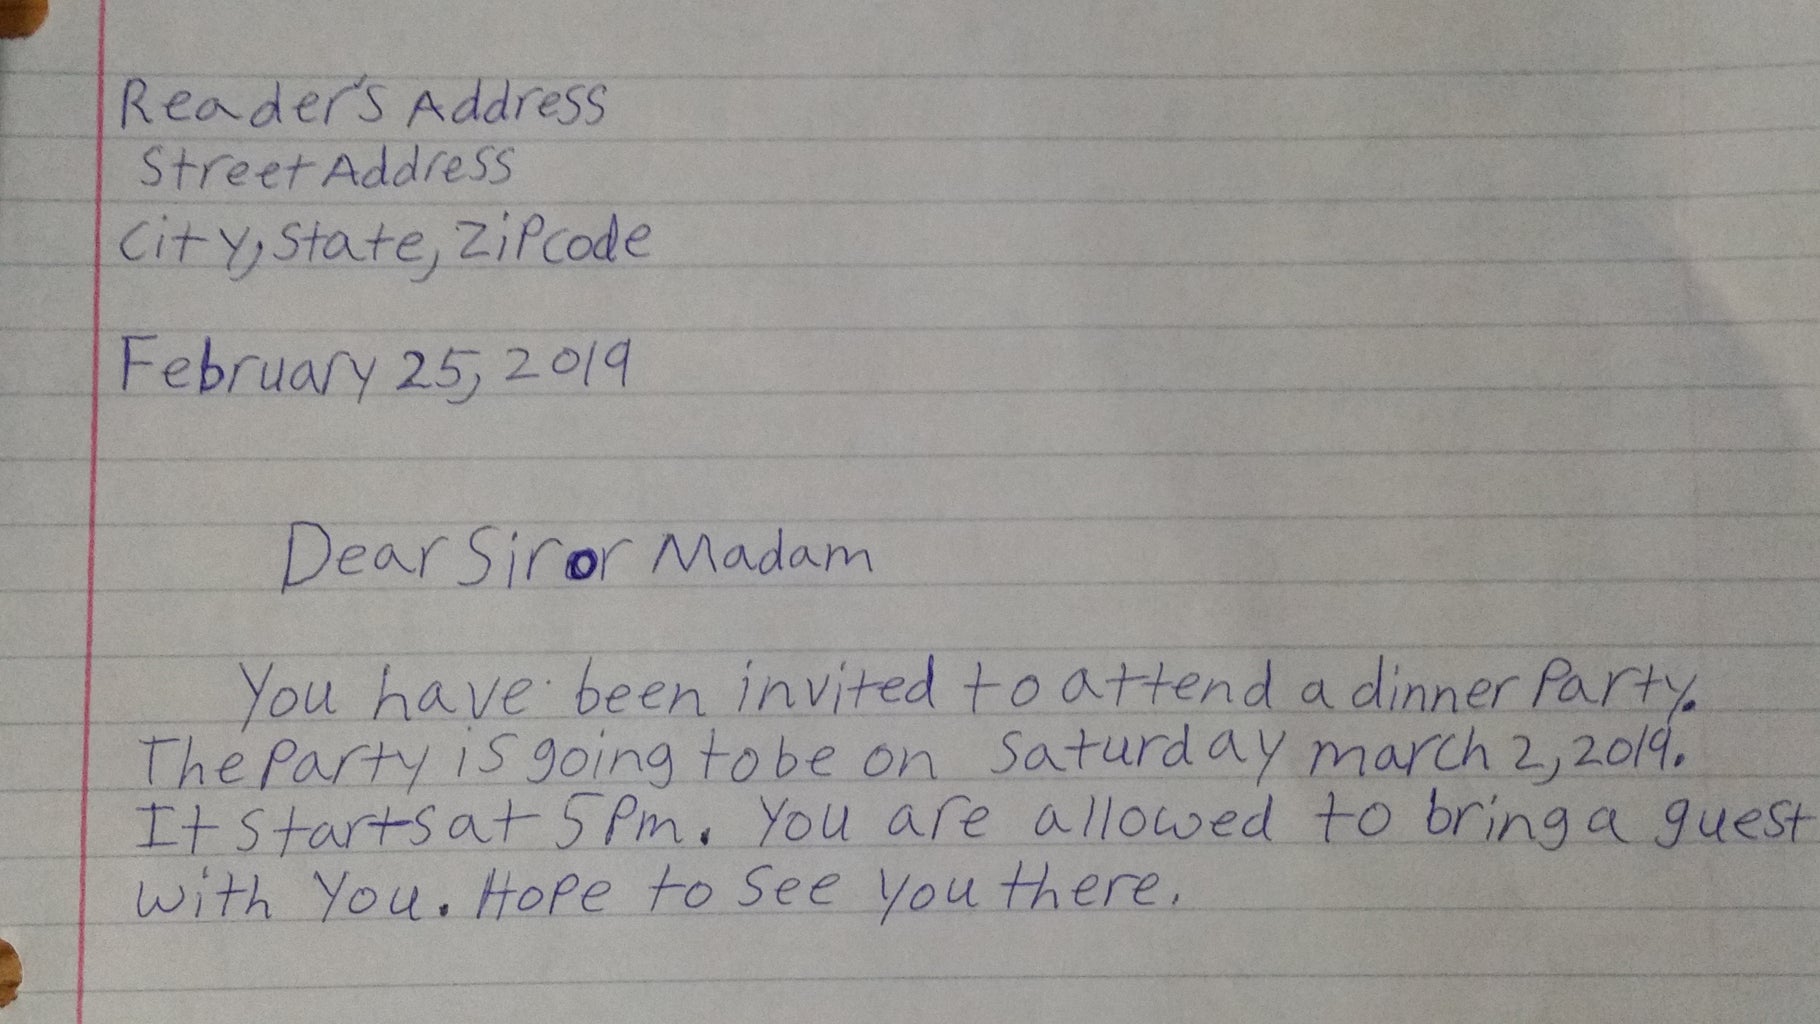 Reader's Address
Street Address
City, State, Zipcode
February 25, 2019
Dear Sir or Madam
You have been invited to attend a dinner Party.
The Party is going to be on Saturday march 2, 2019.
It starts at 5 Pm. You are allowed to bring a guest
with You. Hope to See you there.